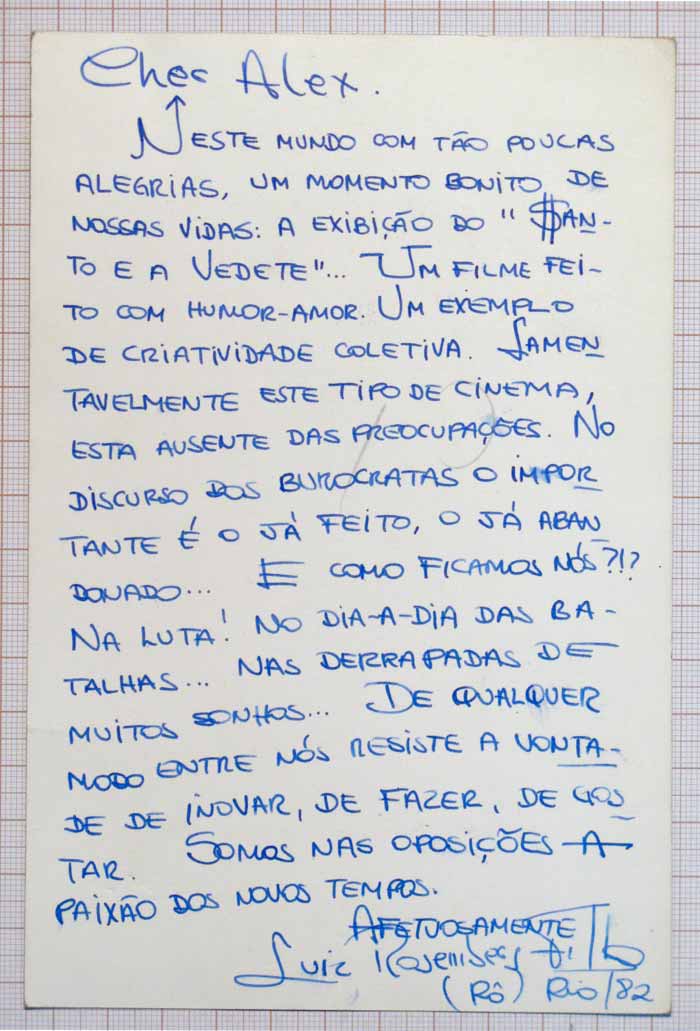 Cher Alex.
NESTE MUNDO COM TÃO POUCAS
ALEGRIAS, UM MOMENTO BONITO DE
NOSSAS VIDAS: A EXIBIÇÃO DO "$AN-
TO E A VEDETE"... UM FILME FEI-
TO COM HUMOR-AMOR. UM EXEMPLO
DE CRIATIVIDADE COLETIVA. LAMEN
TAVELMENTE ESTE TIPO DE CINEMA,
ESTA AUSENTE DAS PREOCUPAÇÕES. NO
DISCURSO DOS BUROCRATAS O IMPOR
TANTE É O JÁ FEITO, O JÁ ABAN
DONADO... E COMO FICAMOS NÓS?!?
NA LUTA! NO DIA-A-DIA DAS BA-
TALHAS... NAS DERRAPADAS DE
MUITOS SONHOS... DE QUALQUER
MODO ENTRE NÓS RESISTE A VONTA-
DE DE INOVAR, DE FAZER, DE GOS
TAR. SOMOS NAS OPOSIÇÕES A
PAIXÃO DOS NOVOS TEMPOS.
AFETUOSAMENTE
Luiz Rosemberg Filho
(RÔ) Rio/82